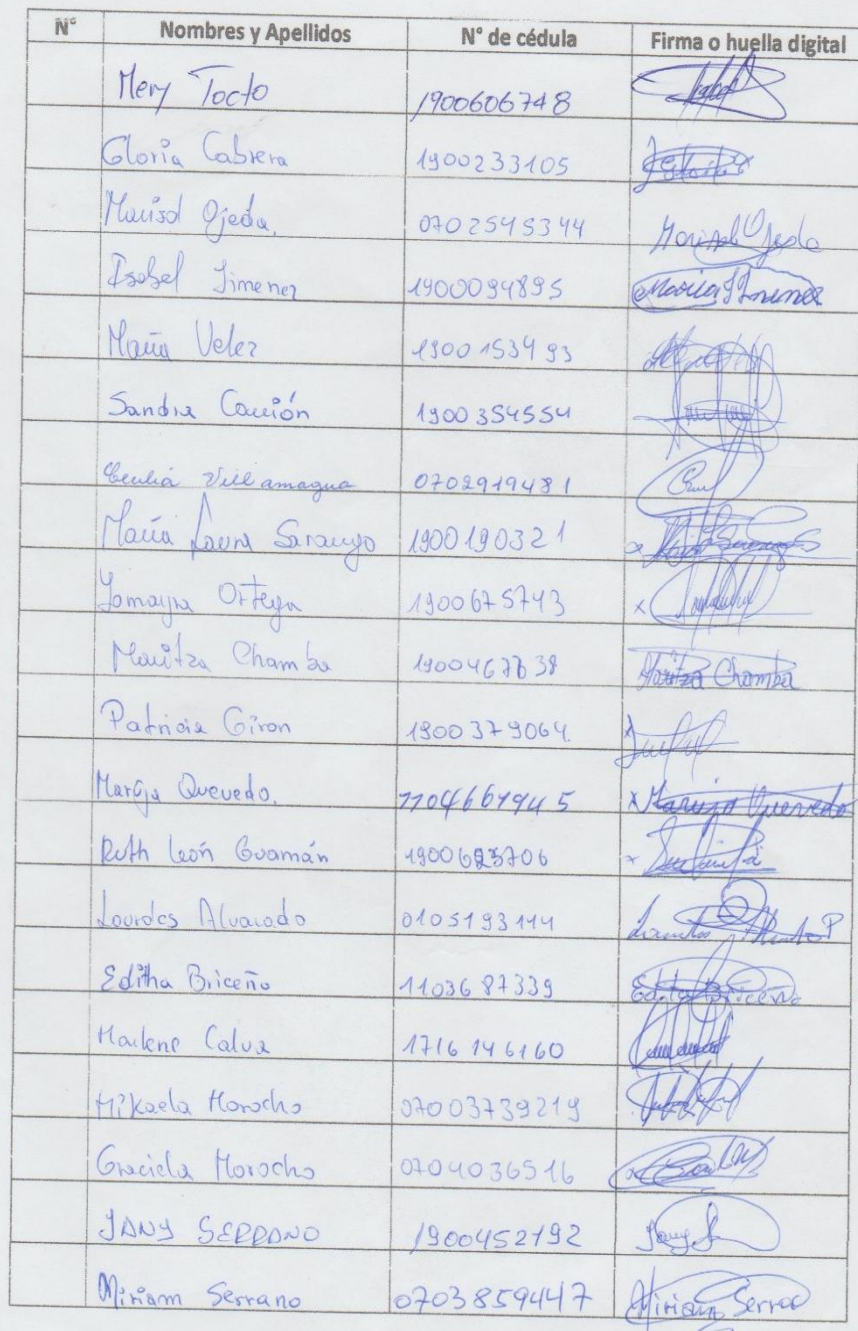 N° Nombres y Apellidos N° de cédula Firma o huella digital
Mery Tocto 1900606748
Gloria Cabrera 1900233105
Marisol Ojeda. 0702545344 Marisol Ojeda
Isabel Jimenez 1900094895 Maria I Jimenez
María Velez 1900153493
Sandra Carrión 1900354554
Cecilia Villamagua 0702919481
María Laura Sarango 1900190321
Jomayra Ortega 1900675743
Maritza Chamba 1900467638 Maritza Chamba
Patricia Giron 1900379064
Maruja Quevedo. 1104661945 x Maruja Quevedo
Ruth León Guamán 1900693706
Lourdes Alvarado 0105193114
Editha Briceño 1103687339 Editha Briceño
Marlene Calva 1716146160
Mikaela Morocho 07003739219
Graciela Morocho 0704036516
JANY SERRANO 1900452192 Jany S
Miriam Serrano 0703859447 Miriam Serrano